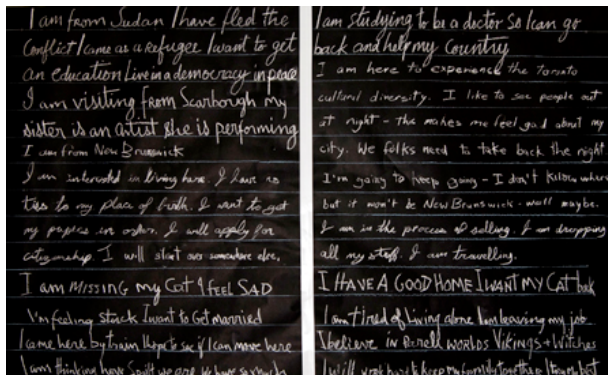 I am from Sudan I have fled the
Conflict I came as a refugee I want to get
an education Live in a democracy in peace
I am visiting from Scarborgh my
sister is an artist she is performing
I am from New Brunswick
I am interested in living here. I have no
ties to my place of birth. I want to get
my papers in order. I will apply for
citizenship I will start over somewhere else.
I am Missing my Cat I feel SAD
I'm feeling stuck I want to Get married
I came here by train I hope to see if I can move here
I am thinking how
I am studying to be a doctor so I can go
back and help my Country
I am here to experience the toronto
cultural diversity. I like to see people out
at night - the makes me feel good about my
city. We folks need to take back the night
I'm going to keep going - I don't know where
but it won't be New Brunswick - well maybe.
I am in the process of selling. I am dropping
all my stuff. I am travelling.
I HAVE A GOOD HOME I WANT MY CAT back
I am tired of living alone I am leaving my job
I believe in worlds Vikings + Witches
I will work hard to keep my family together I try my best